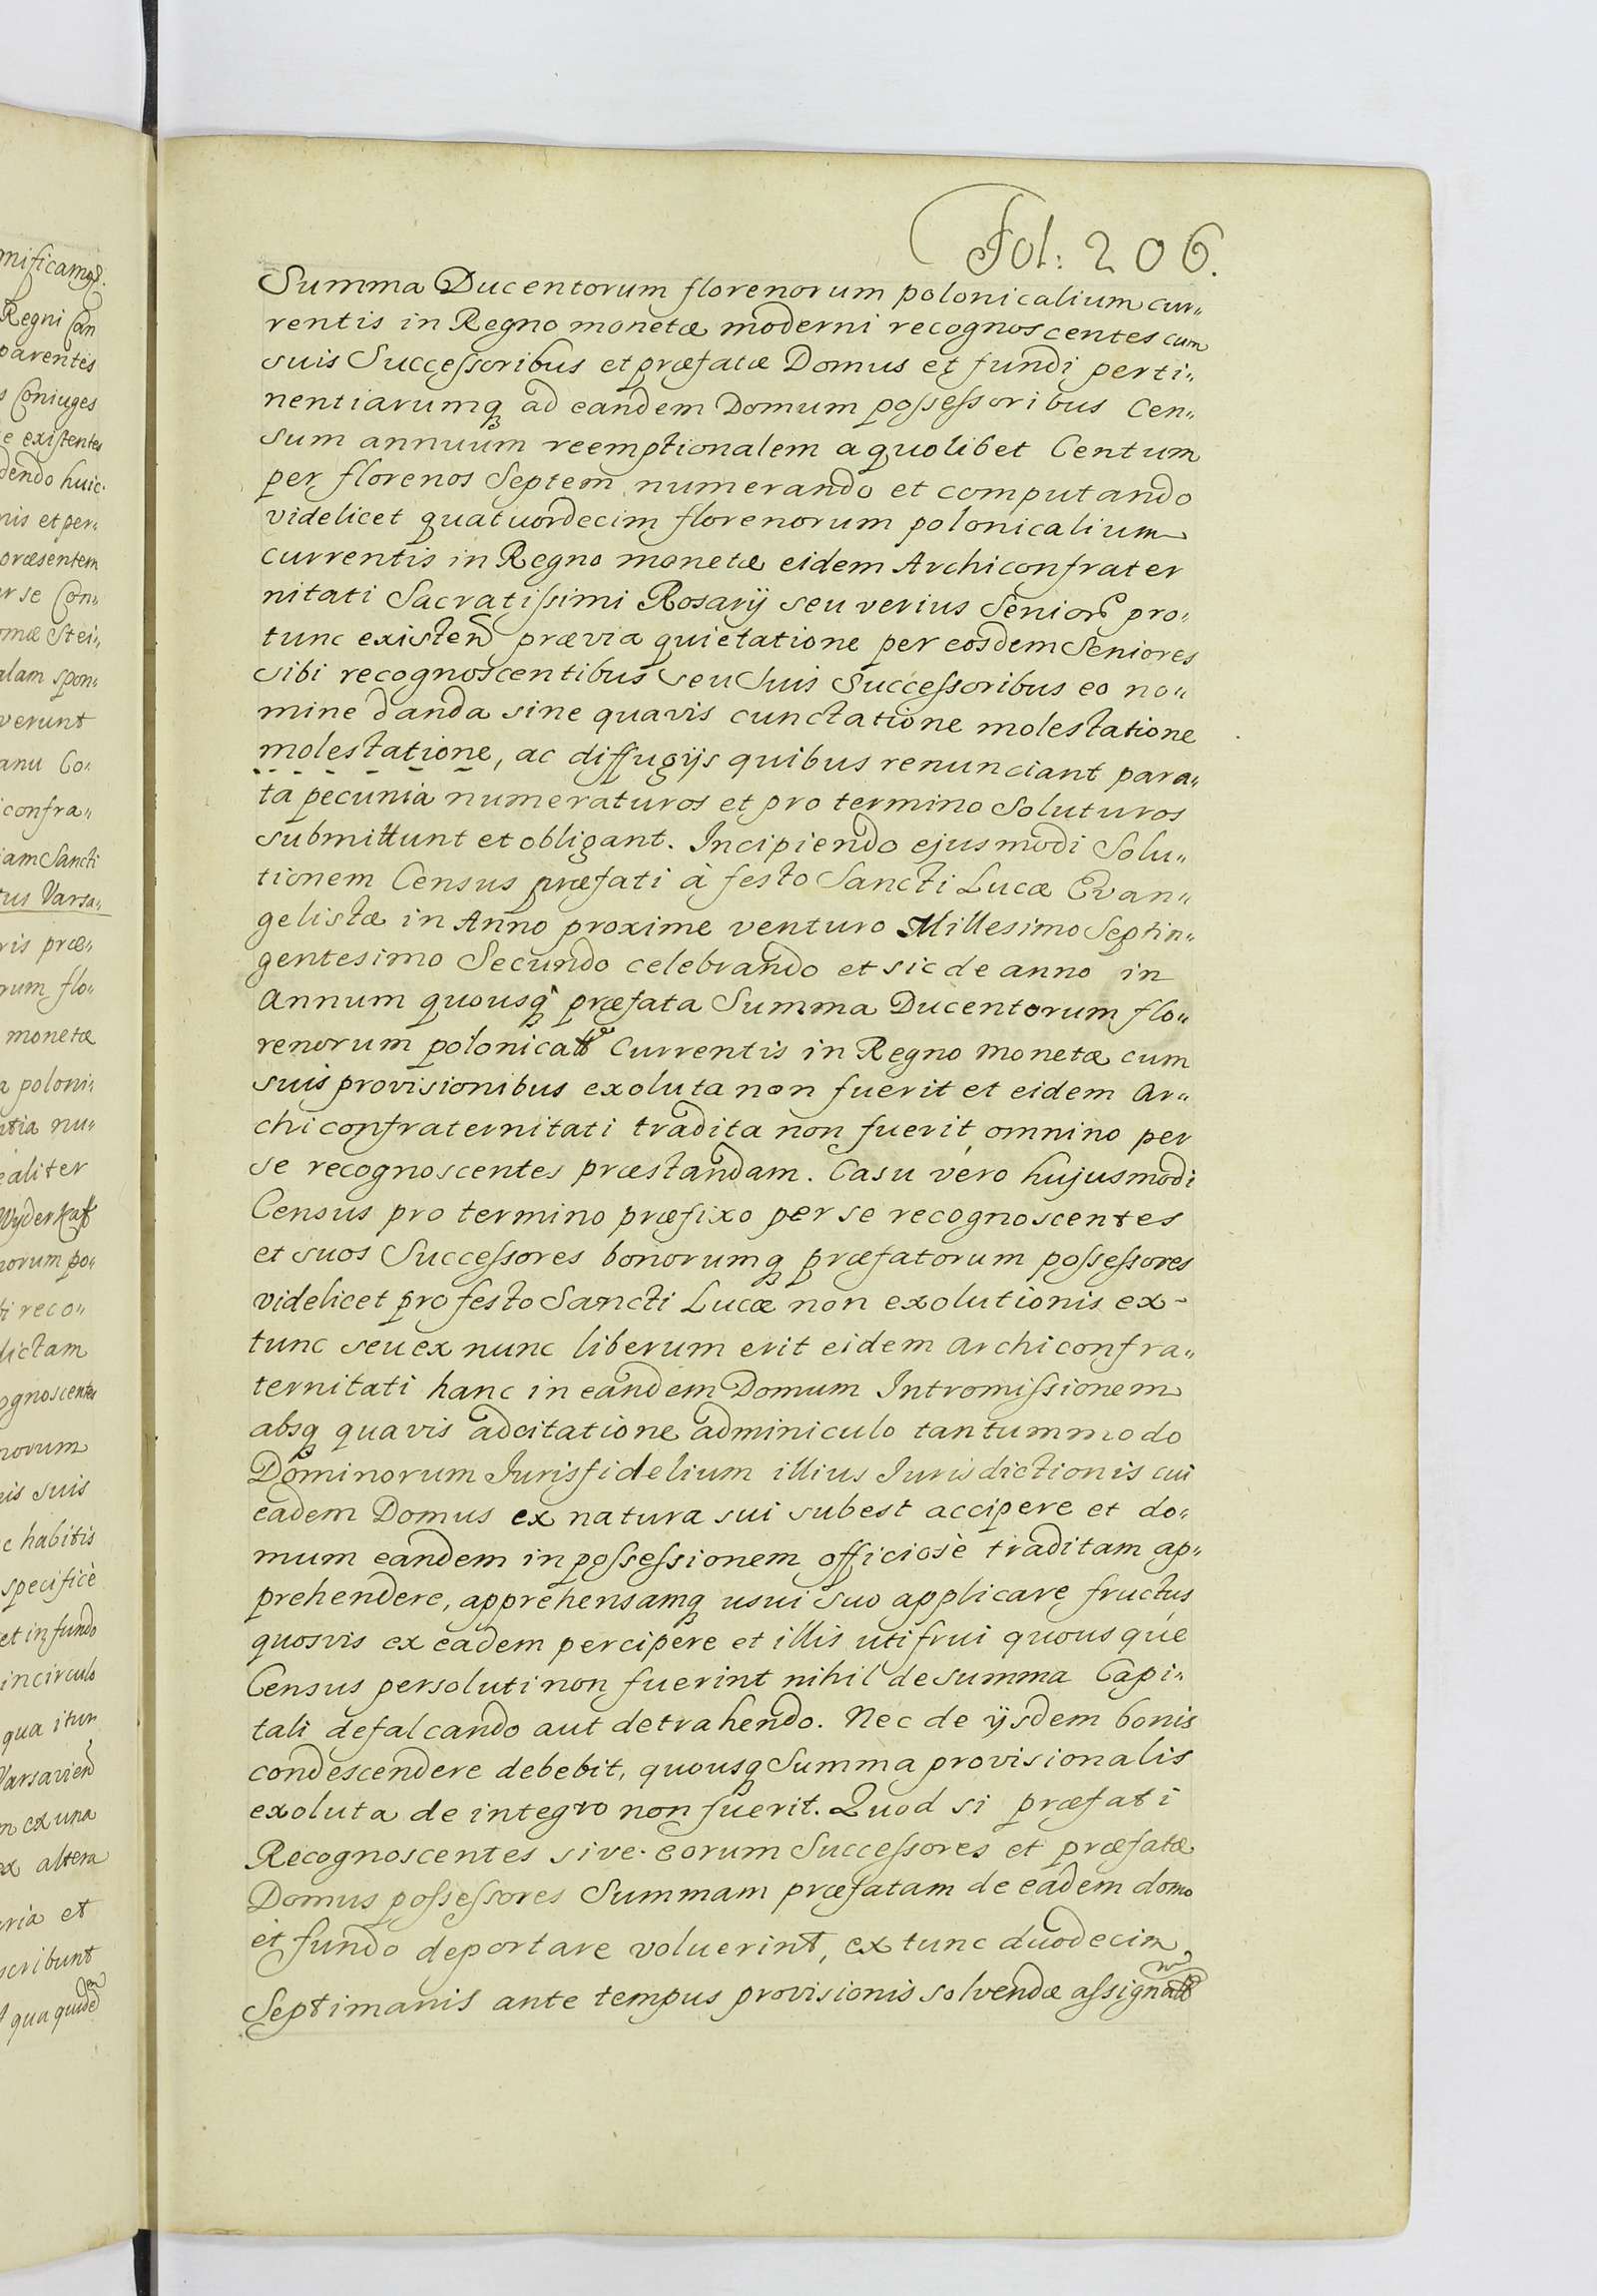 Fol: 206.
Summa Ducentorum florenorum polonicalium cur„
rentis in Regno monetæ moderni recognoscentes cum
suis Successoribus et præfatæ Domus et fundi perti„
nentiarumq ad eandem Domum possessoribus Cen„
sum annuum reemptionalem a quolibet Centum
per florenos Septem numerando et computando
videlicet quatuordecim florenorum polonicalium
currentis in Regno monetæ eidem Archiconfrater
nitati Sacratissimi Rosarÿ seu verius Senior pro„
tunc existen prævia quietatione per eosdem Seniores
sibi recognoscentibus seu Suis Successoribus eo no„
mine danda sine quavis cunctatione molestatione
molestatione, ac diffugÿs quibus renunciant para„
ta pecunia numeraturos et pro termino Soluturos
submittunt et obligant. Incipiendo ejusmodi Solu„
tionem Census præfati à festo Sancti Lucæ Evan„
gelistæ in Anno proxime venturo Millesimo Septin„
gentesimo Secundo celebrando et sic de anno in
Annum quousq præfata Summa Ducentorum flo„
renorum polonical currentis in Regno monetæ cum
suis provisionibus exoluta non fuerit et eidem Ar„
chiconfraternitati tradita non fuerit omnino per
se recognoscentes præstandam. Casu vero hujusmodi
Census pro termino præfixo per se recognoscentes
et suos Successores bonorumq præfatorum possessores
videlicet pro festo Sancti Lucæ non exolutionis ex-
tunc seu ex nunc liberum erit eidem Archiconfra„
ternitati hanc in eandem Domum Intromissionem
absq quavis adcitatione adminiculo tantummodo
Dominorum Jurisfidelium illius Jurisdictionis cui
eadem Domus ex natura sui subest accipere et do„
mum eandem in possessionem officiosè traditam ap„
prehendere, apprehensamq usui suo applicare fructus
quosvis ex eadem percipere et illis uti frui quousque
Census persoluti non fuerint nihil de summa Capi„
tali defalcando aut detrahendo. Nec de ÿsdem bonis
condescendere debebit, quousq Summa provisionalis
exoluta de integro non fuerit. Quod si præfati
Recognoscentes sive eorum Successores et præfatæ
Domus possessores Summam præfatam de eadem domo
et fundo deportare voluerint, ex tunc duodecim
Septimanis ante tempus provisionis solvendæ assignat
mificamq
Regni Can
parentes
s Coniuges
e existentes
dendo huic
nis et per„
præsentem
r se Con„
omæ Stei„
alam spon„
verunt
anu Co„
confra„
iam Sancti
tus Varsa„
ris præ„
rum flo„
monetæ
a poloni„
ntia nu„
ealiter
Wyderkaff
norum po„
ti reco„
dictam
ognoscentes
norum
nis suis
c habitis
specificè
et in fundo
in circulo
qua itur
Varsavien
m ex una
ex altera
aria et
scribunt
qua quidem